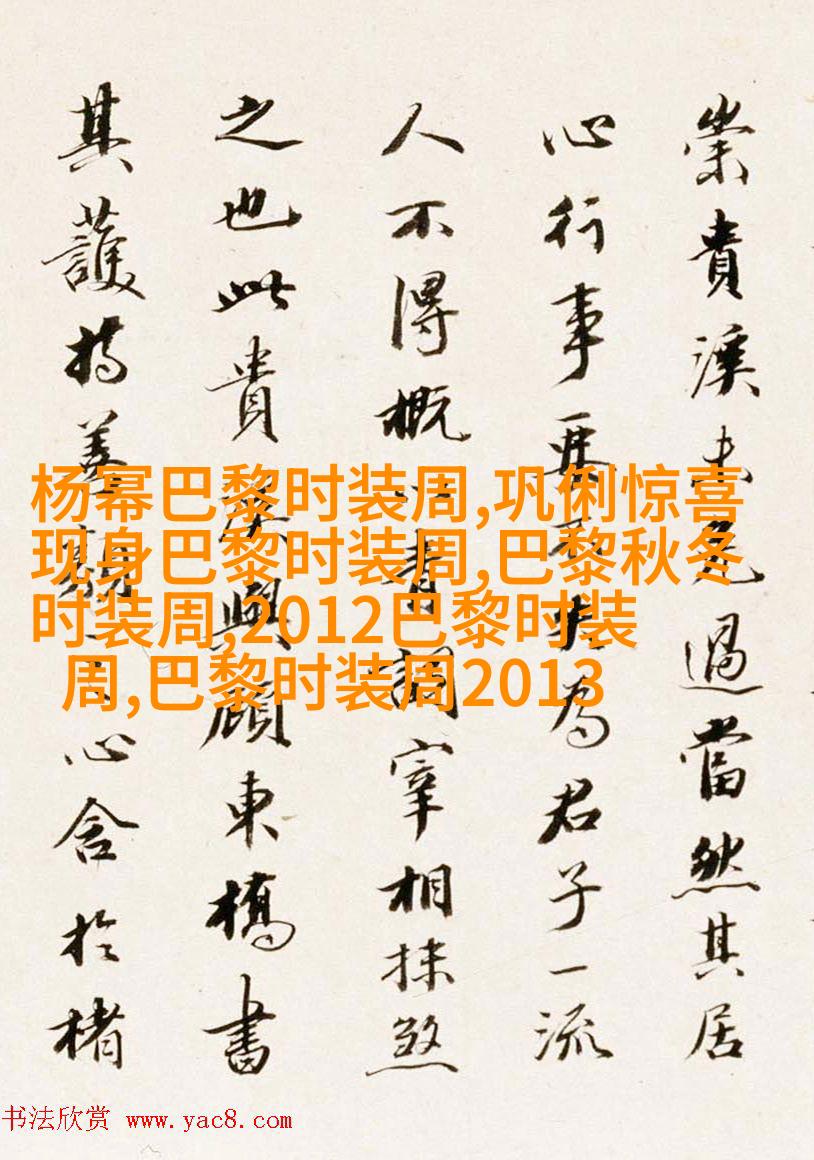 崇貴溪未免過當然其居
心行事要不失為君子一流
人不得概以青詞宰相抹煞
之也此貴溪與顧東橋書
其護持善類之心含於楮
杨幂巴黎时装周,巩俐惊喜
现身巴黎时装周,巴黎秋冬
时装周,2012巴黎时装
周,巴黎时装周2013
书法欣赏 www.yac8.com